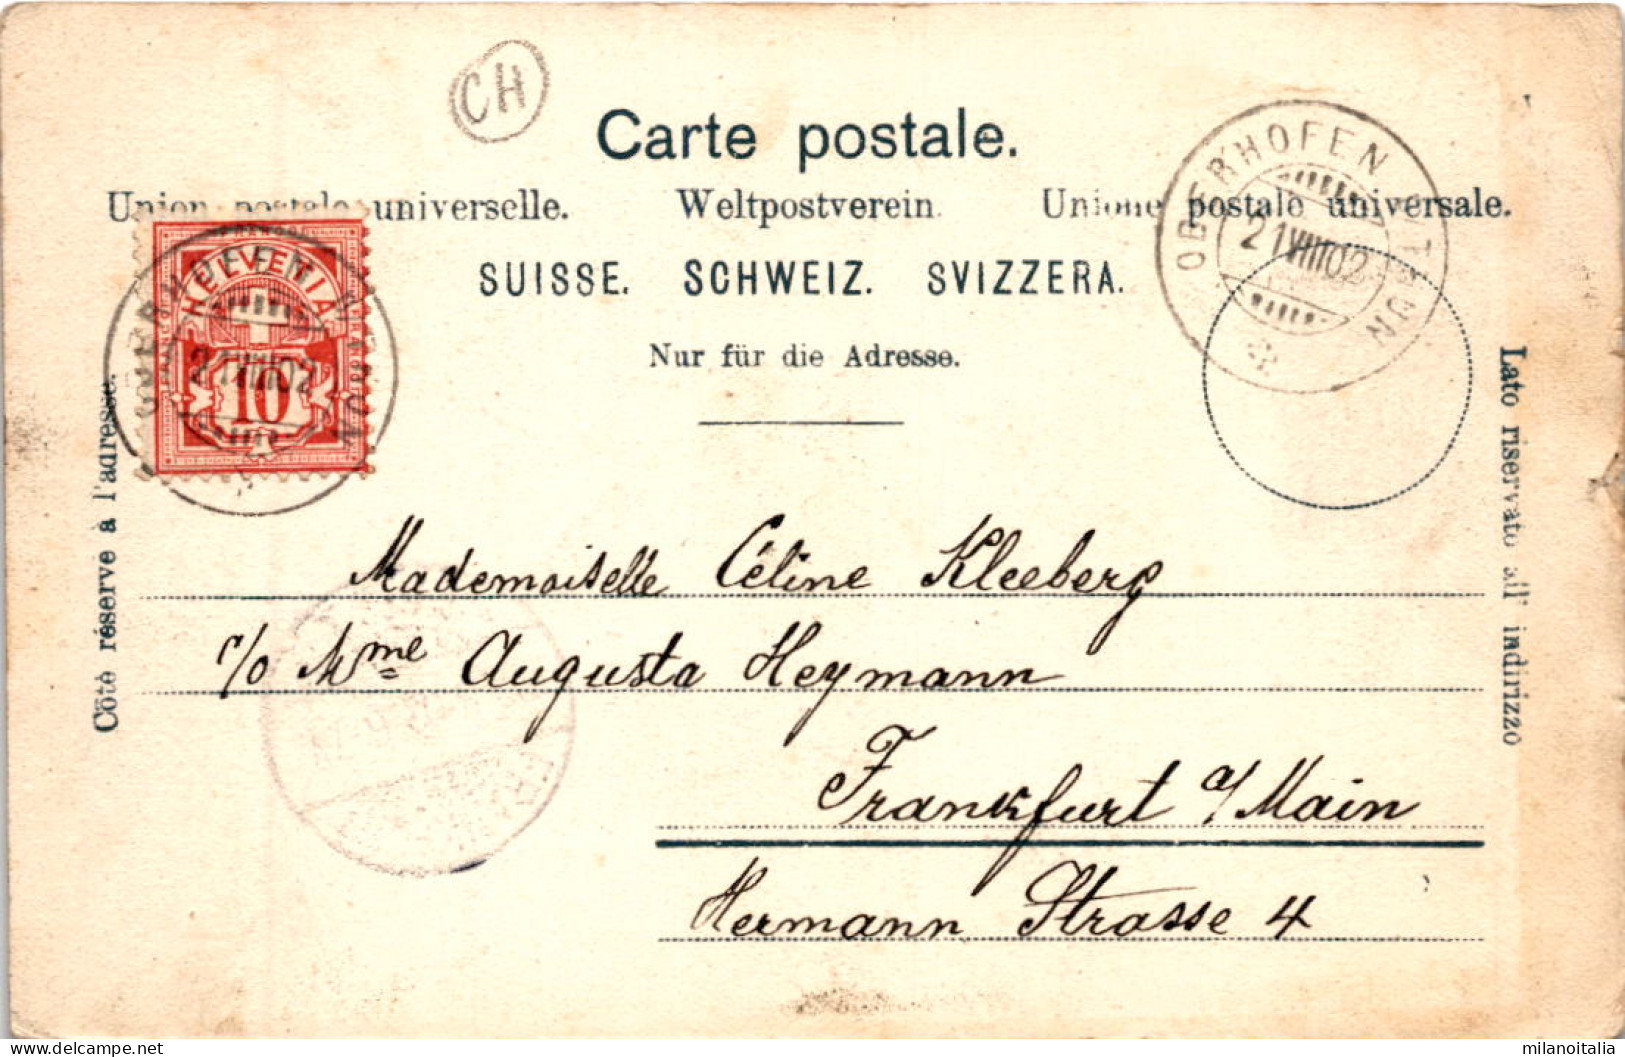 CH
Carte postale.
Union postale universelle. Weltpostverein. Unione postale universale.
SUISSE. SCHWEIZ. SVIZZERA.
Nur für die Adresse.
HELVETIA
10
OBERHOFEN
21 VIII 02
OBERHOFEN
21 VIII 02
Côté réservé à l'adresse.
Lato riservato all' indirizzo
Mademoiselle Céline Kleeberg
c/o Mme Augusta Heymann
Frankfurt a/Main
Hermann Strasse 4
milanoitalia